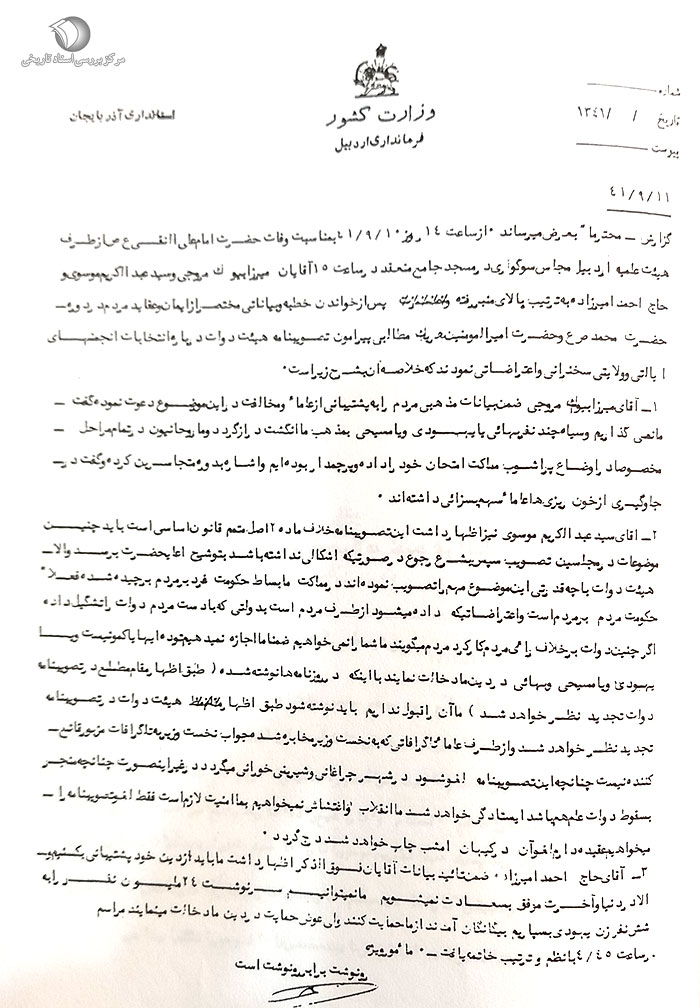 مرکز بررسی اسناد تاریخی
وزارت کشور
فرمانداری اردبیل
استانداری آذربایجان
شماره
تاریخ / / ۱۳۴۱
پیوست
۴۱/۹/۱۱
گزارش ـ محترما" بعرض میرساند ۰ از ساعت ۱۴ روز ۴۱/۹/۱۰ بمناسبت وفات حضرت امام علی النقی ع ص از طرف
هیئت علمیه اردبیل مجلس سوگواری در مسجد جامع منعقد در ساعت ۱۵ آقایان میرزا بیوک مروجی و سید عبدالکریم موسوی و
حاج احمد امیرزاده به ترتیب بالای منبر رفته پس از خواندن خطبه و بیاناتی مختصر از ایمان و عقاید مردم در دوره ـ
حضرت محمد ص ع و حضرت امیرالمومنین هریک مطالبی پیرامون تصویبنامه هیئت دولت درباره انتخابات انجمنهای
ایالتی و ولایتی سخنرانی و اعتراضاتی نمودند که خلاصه آن بشرح زیر است ۰
۱ـ آقای میرزا بیوک مروجی ضمن بیانات مذهبی مردم را به پشتیبانی از علما و مخالفت در این موضوع دعوت نموده گفت ـ
ما نمی گذاریم وسیله چند نفر بهائی یا یهودی و یا مسیحی بمذهب ما انگشت دراز گردد و ما روحانیون در تمام مراحل ـ
مخصوصا در اوضاع پر آشوب مملکت امتحان خود را داده و پرچمدار بوده ایم و اشاره بدوره متجاسرین کرده و گفت در ـ
جلوگیری از خون ریزی ها علما سهم بسزائی داشته اند ۰
۲ـ آقای سید عبدالکریم موسوی نیز اظهار داشت این تصویبنامه خلاف ماده ۲ اصل متمم قانون اساسی است باید چنین
موضوعات در مجلسین تصویب سپس بشرع رجوع در صورتیکه اشکالی نداشته باشد بتوشیح اعلیحضرت برسد والا ـ
هیئت دولت با چه قدرتی این موضوع مهم را تصویب نموده اند در مملکت ما بساط حکومت فرد بر مردم برچیده شده فعلا"
حکومت مردم بر مردم است و اعتراضاتیکه داده میشود از طرف مردم است بدولتی که بدست مردم دولت را تشکیل داده
اگر چنین دولت برخلاف رأی مردم کار کرد مردم میگویند ما شما را نمی خواهیم ضمنا ما اجازه نمیدهیم توده ایها یا کمونیست و یا
یهودی و یا مسیحی و بهائی در دین ما دخالت نمایند با اینکه در روزنامه ها نوشته شده ( طبق اظهار مقام مطلع در تصویبنامه
دولت تجدید نظر خواهد شد ) ما آن را قبول نداریم باید نوشته شود طبق اظهار هیئت دولت در تصویبنامه
تجدید نظر خواهد شد و از طرف علما تلگرافاتی که به نخست وزیر مخابره شد جواب نخست وزیر به تلگرافات مزبور قانع ـ
کننده نیست چنانچه این تصویبنامه لغو شود در شهر چراغانی و شیرینی خورانی میگردد در غیر اینصورت چنانچه منجر
بسقوط دولت علم هم باشد ایستادگی خواهد شد ما انقلاب و اغتشاش نمیخواهیم بما امنیت لازم است فقط لغو تصویبنامه را ـ
میخواهیم عقیده دارم لغو آن در کیهان امشب چاپ خواهد شد درج گردد ۰
۳ـ آقای حاج احمد امیرزاده ضمن تائید بیانات آقایان فوق الذکر اظهار داشت ما باید از دین خود پشتیبانی بکنیم و ـ
الا در دنیا و آخرت موفق بسعادت نمیشویم ما نمیتوانیم سرنوشت ۲۴ میلیون نفر را به
شش نفر زن یهودی بسپاریم بیگانگان آمدند از ما حمایت کنند ولی عوض حمایت در دین ما دخالت مینمایند مراسم
در ساعت ۴/۴۵ با نظم و ترتیب خاتمه یافت ـ ۰ مأمور ویژه
رونوشت برابر رونوشت است